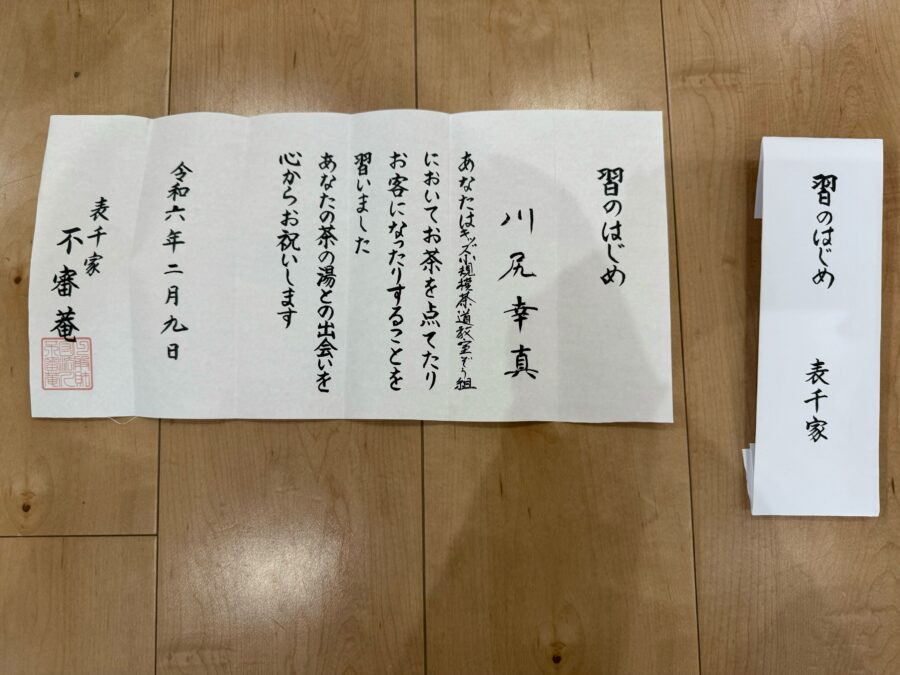 習のはじめ
川尻幸真
あなたはキッズ小規模茶道教室ぞう組
においてお茶を点てたり
お客になったりすることを
習いました
あなたの茶の湯との出会いを
心からお祝いします
令和六年二月九日
表千家
不審菴
習のはじめ
表千家